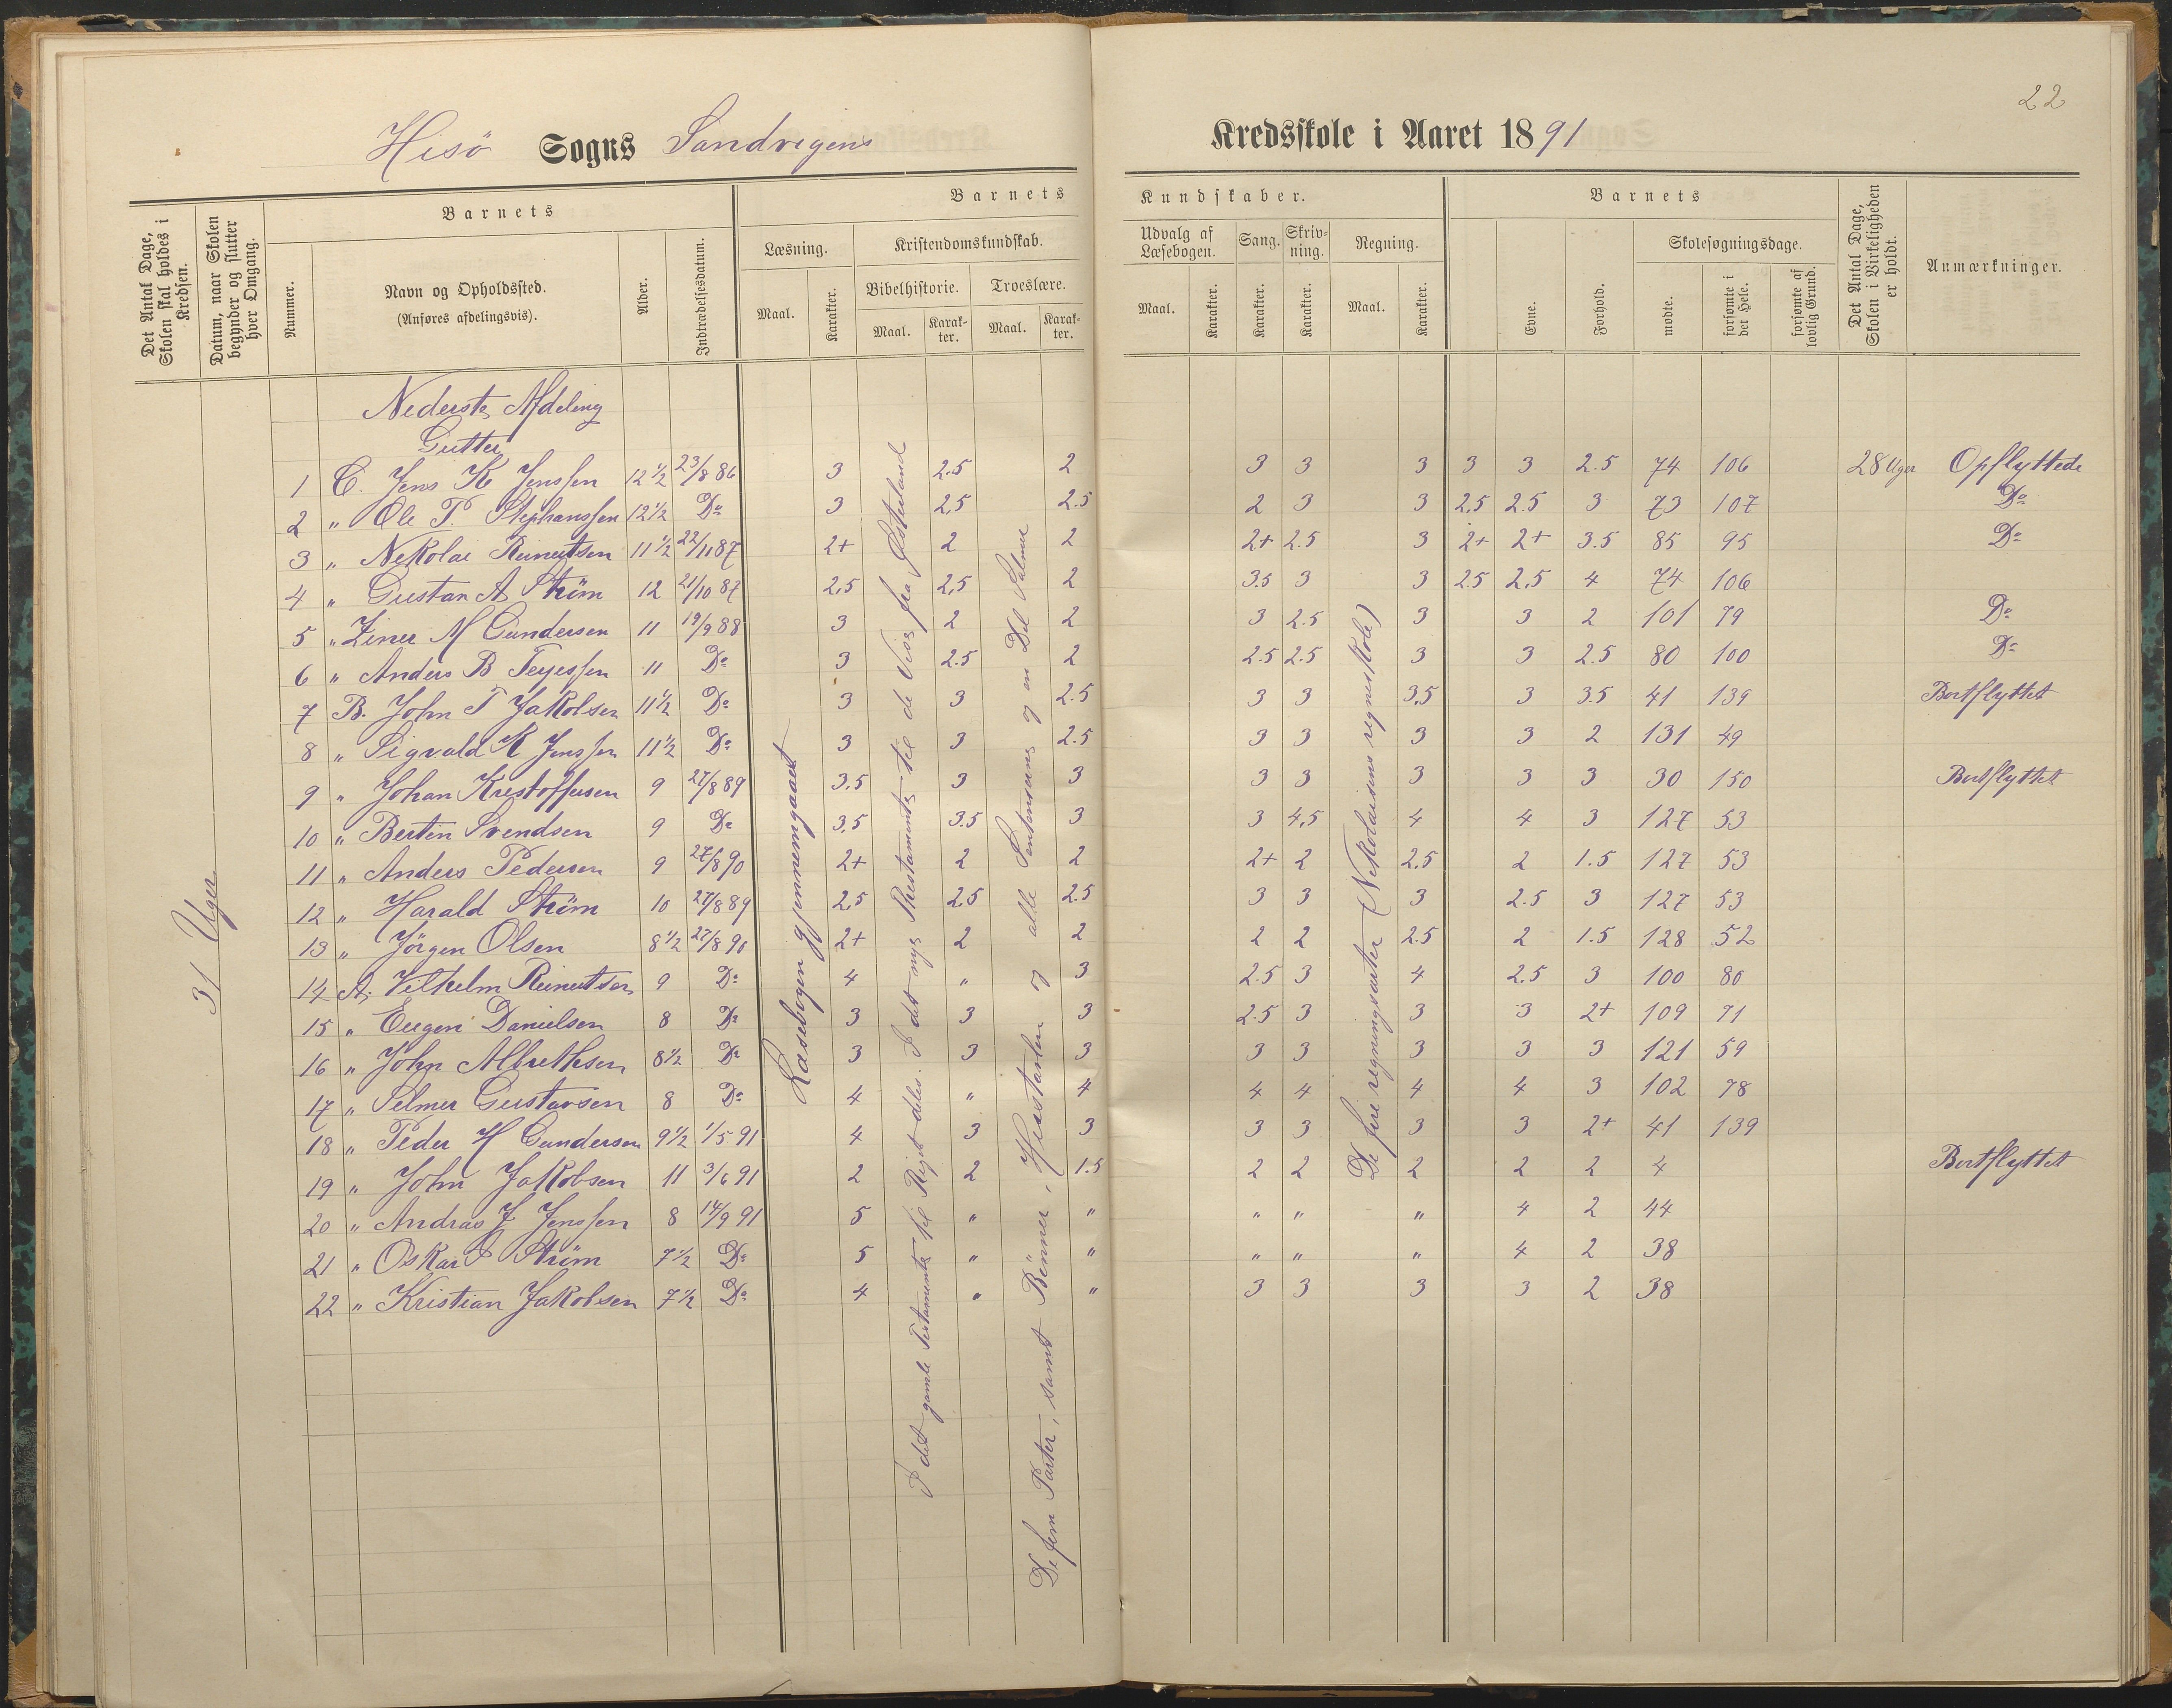 22
Hisö Sogns Sandvigens Kredsskole i Aaret 1891
Det Antal Dage, Skolen skal holdes i Kredsen.
Datum, naar Skolen begynder og slutter hver Omgang.
Barnets
Nummer.
Navn og Opholdssted.
(Anføres afdelingsvis).
Alder.
Indtrædelsesdatum.
Barnets Kundskaber.
Læsning.
Maal.
Karakter.
Kristendomskundskab.
Bibelhistorie.
Maal.
Karakter.
Troeslære.
Maal.
Karakter.
Udvalg af Læsebogen.
Maal.
Karakter.
Sang.
Karakter.
Skrivning.
Karakter.
Regning.
Maal.
Karakter.
Barnets
Evne.
Forhold.
Skolesøgningsdage.
mødte.
forsømte i det Hele.
forsømte af lovlig Grund.
Det Antal Dage, Skolen i Virkeligheden er holdt.
Anmærkninger.
31 Uger
Nederste Afdeling
Gutter
1 C. Jens K Jenssen 12 1/2 23/8 86 3 2.5 2 3 3 3 3 3 2.5 74 106 28 Uger Opflyttede
2 " Ole T. Stephanssen 12 1/2 Do 3 2,5 2.5 2 3 3 2,5 2.5 3 73 107 Do
3 " Nekolai Reinertsen 11 1/2 22/11 87 2+ 2 2 2+ 2.5 3 2+ 2+ 3.5 85 95 Do
4 " Gustav A Ström 12 21/10 87 2,5 2,5 2 3.5 3 3 2.5 2,5 4 74 106
5 " Einer M Gundersen 11 19/9 88 3 2 2 3 2.5 3 3 2 101 79 Do
6 " Anders B Terjessen 11 Do 3 2.5 2 2.5 2.5 3 3 2.5 80 100 Do
7 B. John T Jakobsen 11 1/2 Do 3 3 2.5 3 3 3,5 3 3.5 41 139 Bortflyttet
8 " Sigvald K Jenssen 11 1/2 Do 3 3 2.5 3 3 3 3 2 131 49
9 " Johan Krestoffersen 9 27/8 89 3.5 3 3 3 3 3 3 3 30 150 Bortflyttet
10 " Bertin Svendsen 9 Do 3,5 3.5 3 3 4,5 4 4 3 127 53
11 " Anders Pedersen 9 27/8 90 2+ 2 2 2+ 2 2,5 2 1.5 127 53
12 " Harald Ström 10 27/8 89 2,5 2,5 2.5 3 3 3 2.5 3 127 53
13 " Jörgen Olsen 8 1/2 27/8 90 2+ 2 2 2 2 2.5 2 1.5 128 52
14 A. Vilhelm Reinertsen 9 Do 4 " 3 2.5 3 4 2,5 3 100 80
15 " Eugen Danielsen 8 Do 3 3 3 2.5 3 3 3 2+ 109 71
16 " John Albrethsen 8 1/2 Do 3 3 3 3 3 3 3 3 121 59
17 " Selmer Gustavsen 8 Do 4 " 4 4 4 4 4 3 102 78
18 " Peder H Gundersen 9 1/2 1/5 91 4 3 3 3 3 3 3 2+ 41 139
19 " John Jakobsen 11 3/6 91 2 2 1.5 2 2 2 2 2 4 Bortflyttet
20 " Andras J Jenssen 8 14/9 91 5 " " " " " 4 2 44
21 " Oskar Ström 7 1/2 Do 5 " " " " " 4 2 38
22 " Kristian Jakobsen 7 1/2 Do 4 " " 3 3 3 3 2 38
Læsebogen gjennemgaaet
I det gamle Testamente til Riget deles. I det nye Thestamente til de Vise fra Østerland
De fem Parter, samt Bönner, Hustavlen og alle Sentenserne og en Del Salmer
De fire regningsarter (Nekolaisens regneskole)